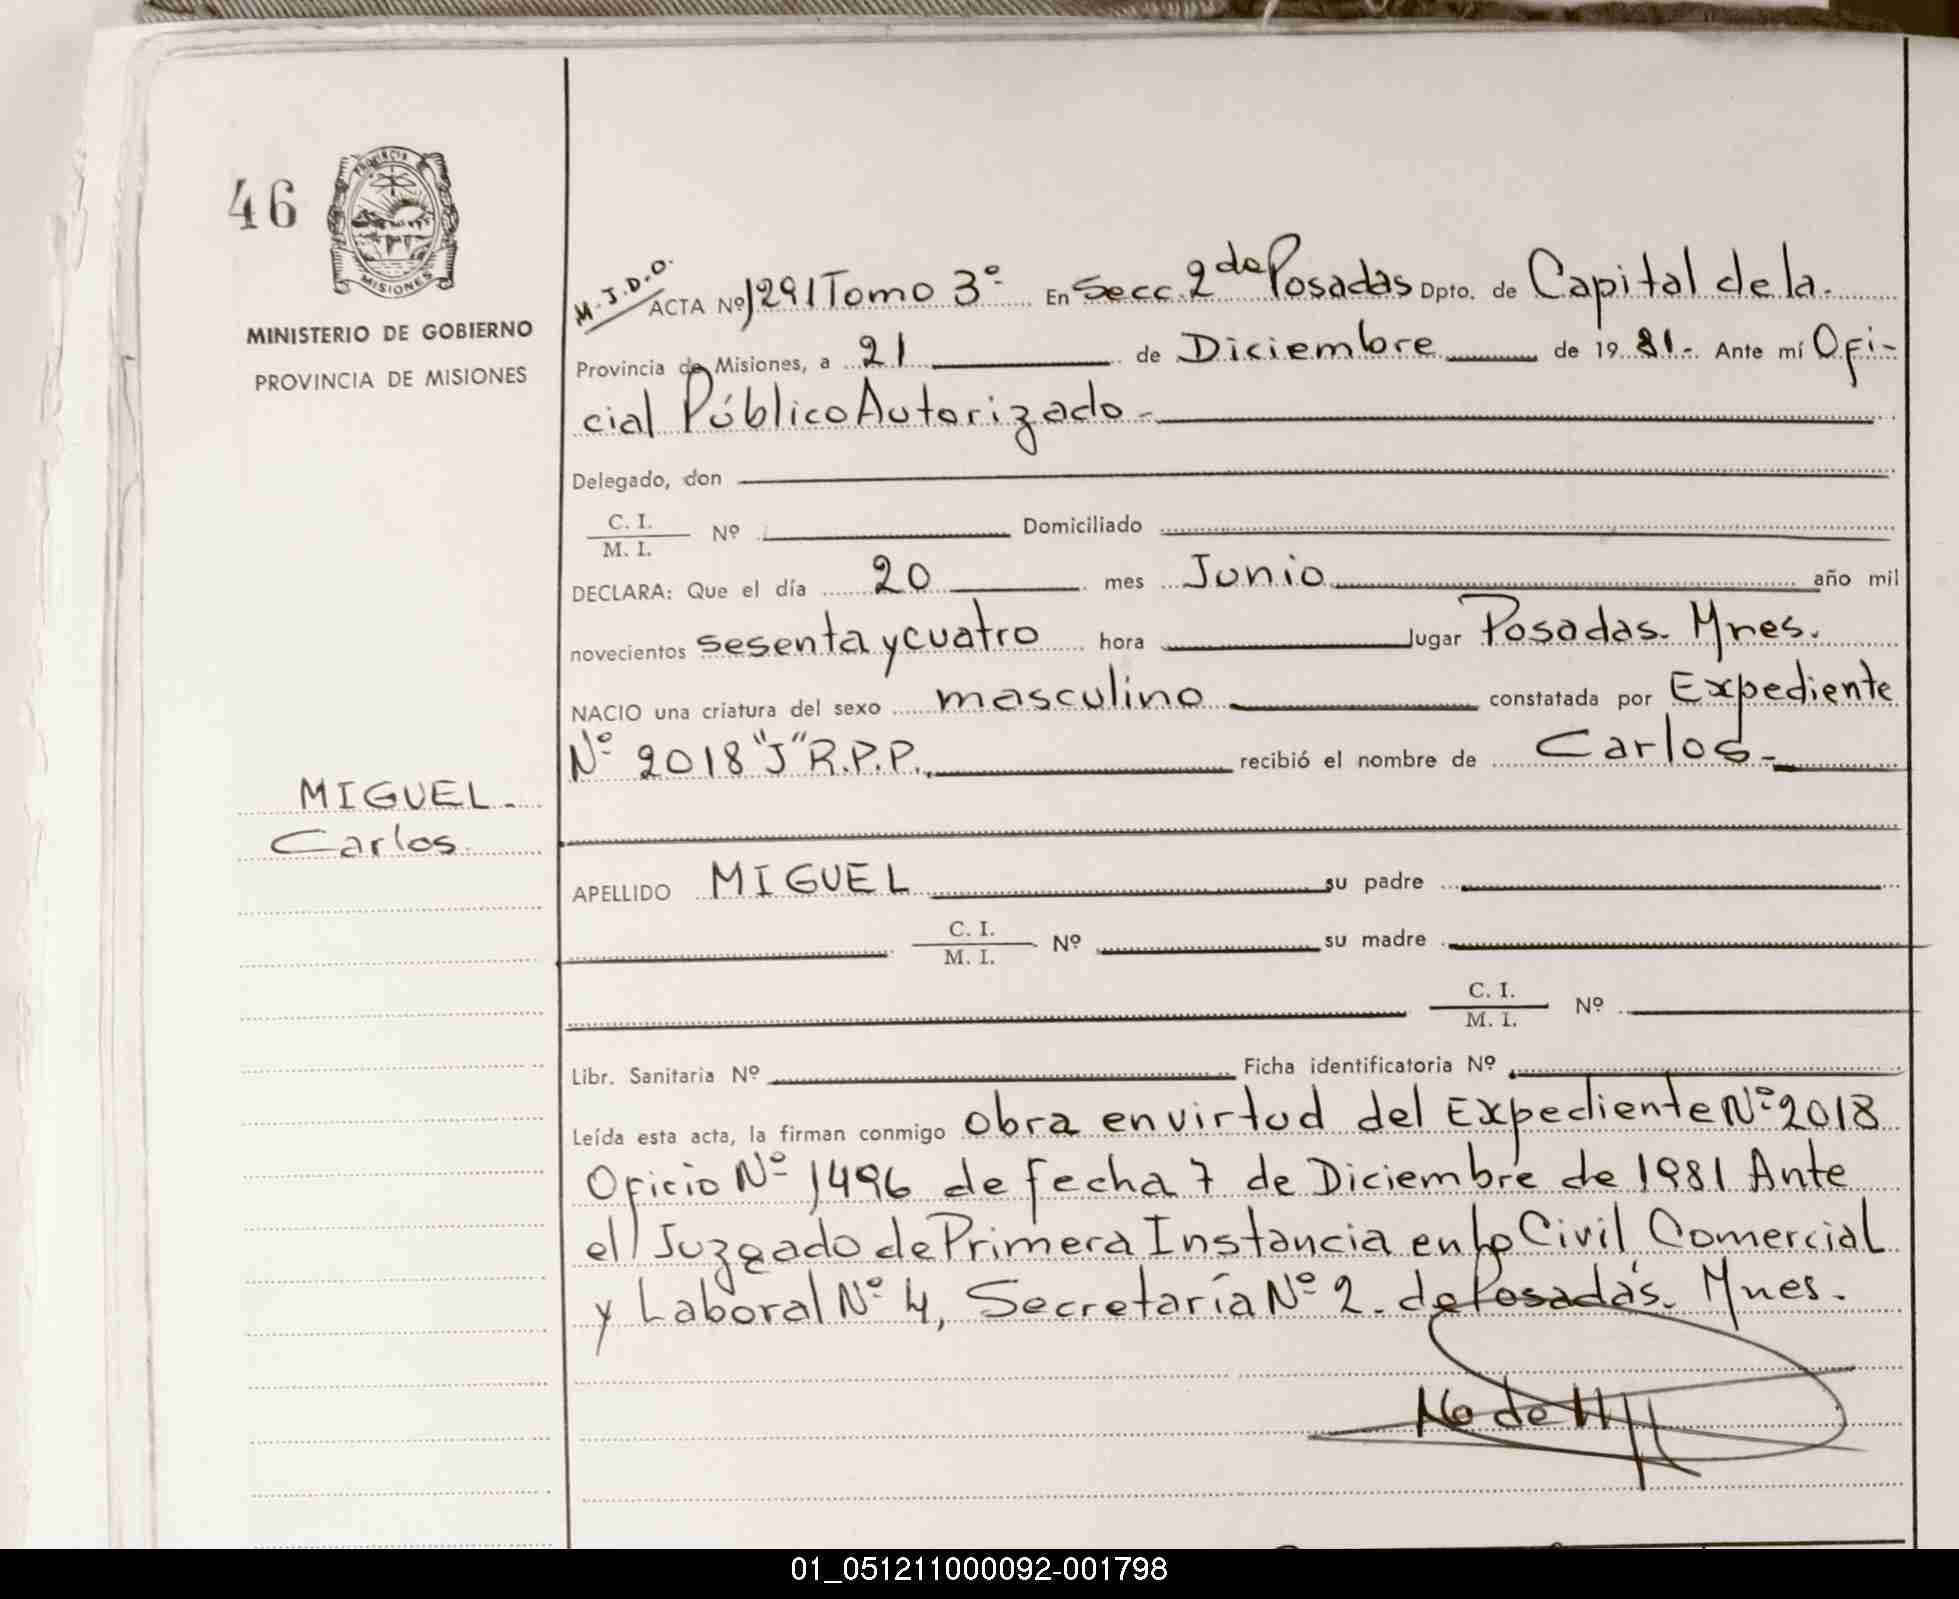 46
PROVINCIA
MISIONES
MINISTERIO DE GOBIERNO
PROVINCIA DE MISIONES
MIGUEL.
Carlos.
M.J.D.O.
ACTA Nº 1291 Tomo 3º En Secc. 2da Posadas Dpto. de Capital de la.
Provincia de Misiones, a 21 de Diciembre de 1981.- Ante mí Ofi-
cial Público Autorizado.-
Delegado, don
C. I.
M. I. Nº Domiciliado
DECLARA: Que el día 20 mes Junio año mil
novecientos sesenta y cuatro hora lugar Posadas. Mnes.
NACIO una criatura del sexo masculino constatada por Expediente
Nº 2018 "J" R.P.P., recibió el nombre de Carlos.-
APELLIDO MIGUEL su padre
C. I.
M. I. Nº su madre
C. I.
M. I. Nº
Libr. Sanitaria Nº Ficha identificatoria Nº
Leída esta acta, la firman conmigo obra en virtud del Expediente Nº 2018
Oficio Nº 1496 de fecha 7 de Diciembre de 1981 Ante
el Juzgado de Primera Instancia en lo Civil Comercial
y Laboral Nº 4, Secretaría Nº 2. de Posadas. Mnes.
01_051211000092-001798